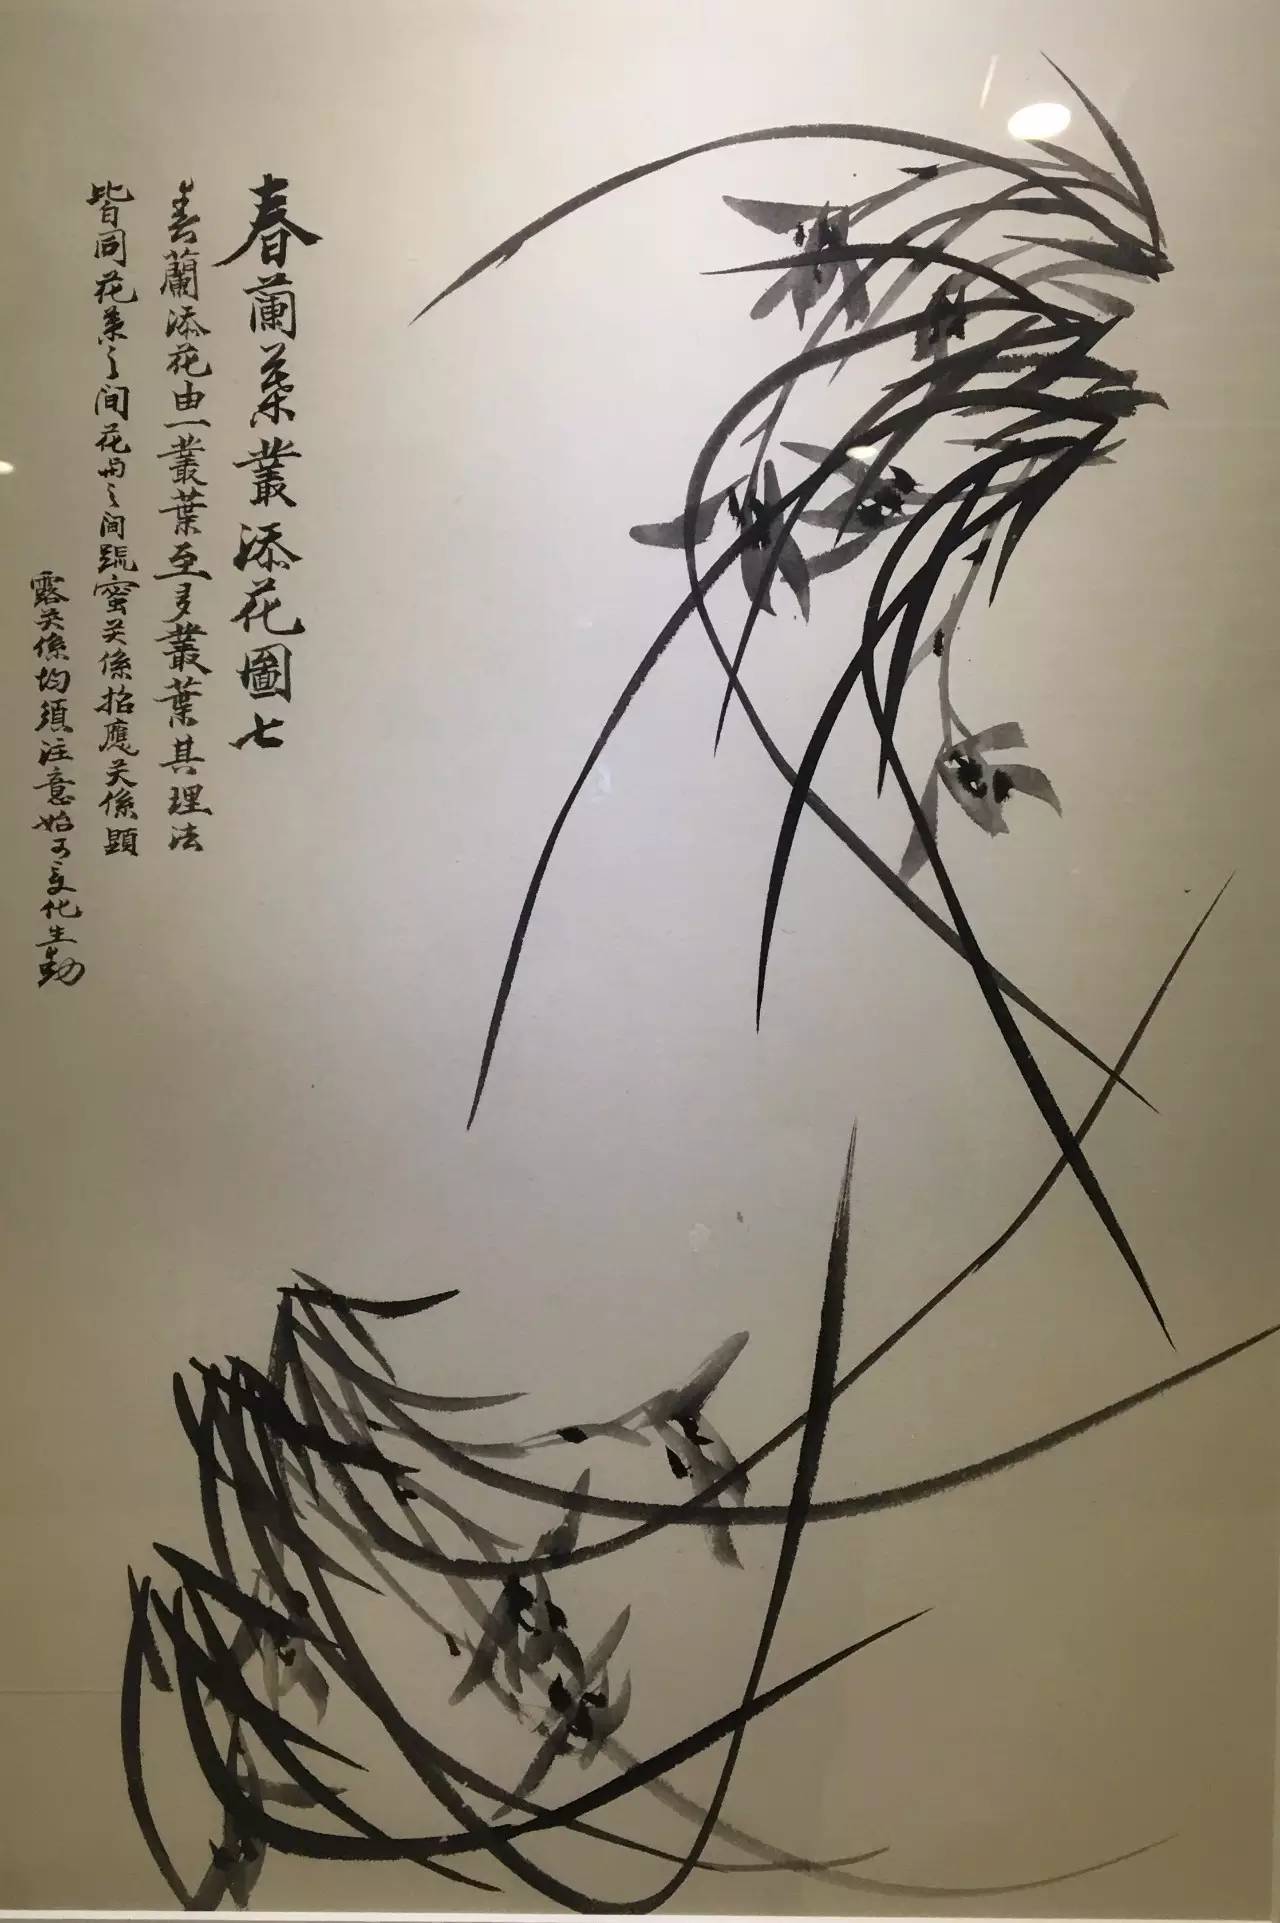 春蘭葉叢添花圖七
春蘭添花由一叢葉至多叢葉其理法
皆同花葉之間花与之间疏密关係招應关係顕
露关係均須注意始可变化生動